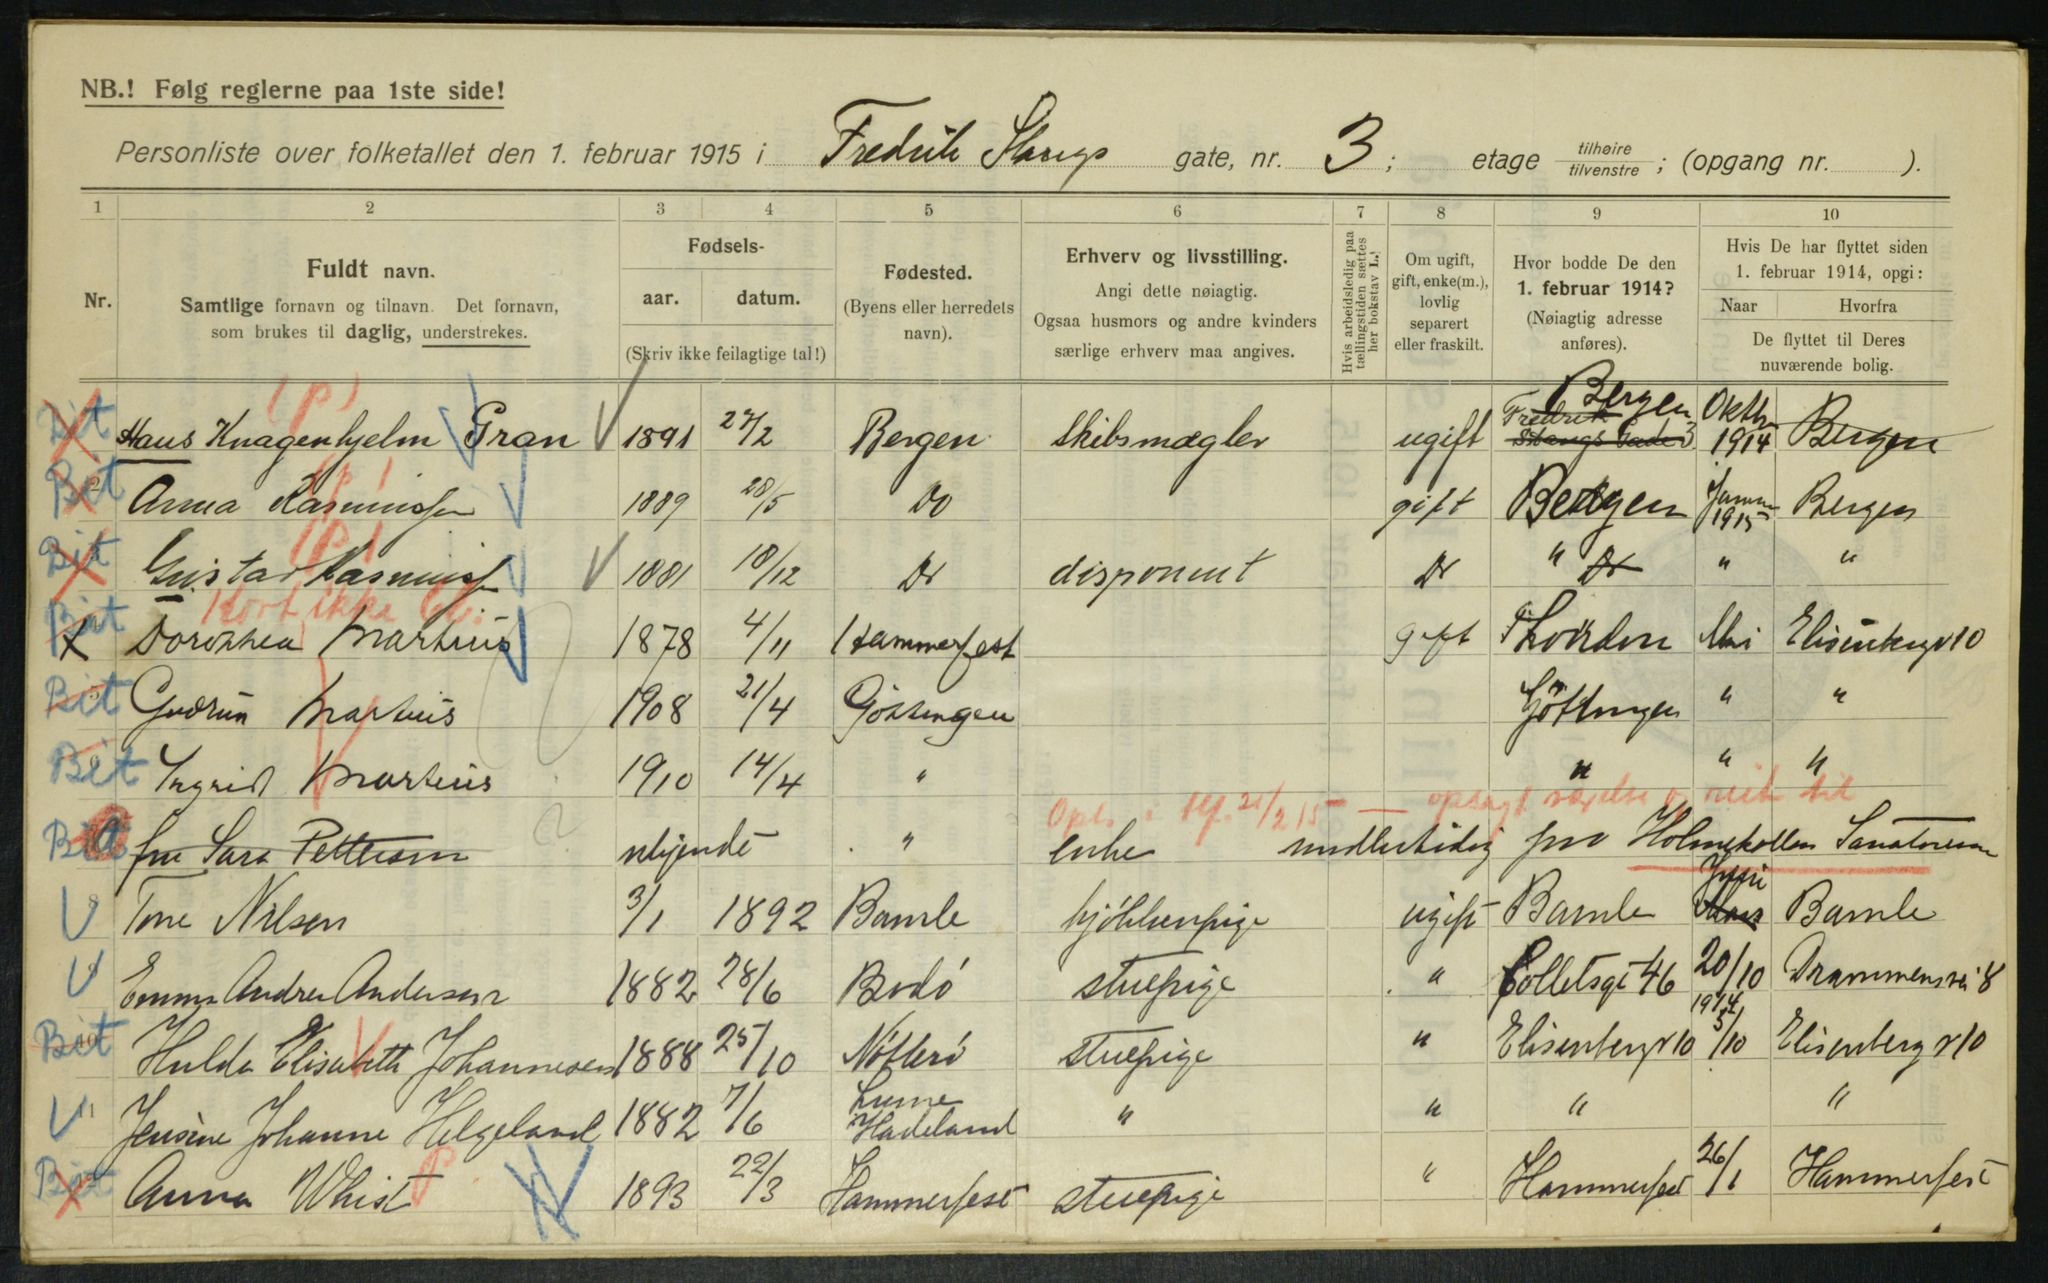 NB.! Følg reglerne paa 1ste side!
Personliste over folketallet den 1. februar 1915 i Fredrik Stangs gate, nr. 3; etage tilhøire tilvenstre; (opgang nr. ).
1 2 3 4 5 6 7 8 9 10
Nr.
Fuldt navn.
Samtlige fornavn og tilnavn. Det fornavn,
som brukes til daglig, understrekes.
Fødsels-
aar. datum.
(Skriv ikke feilagtige tal!)
Fødested.
(Byens eller herredets
navn).
Erhverv og livsstilling.
Angi dette nøiagtig.
Ogsaa husmors og andre kvinders
særlige erhverv maa angives.
Hvis arbeidsledig paa
tællingstiden sættes
her bokstav L.!
Om ugift,
gift, enke(m.),
lovlig
separert
eller fraskilt.
Hvor bodde De den
1. februar 1914?
(Nøiagtig adresse
anføres).
Hvis De har flyttet siden
1. februar 1914, opgi:
Naar Hvorfra
De flyttet til Deres
nuværende bolig.
(P)
Bit Hans Knagenhjelm Gran 1891 27/2 Bergen Skibsmægler ugift Fredrik Stangs Gade 3 Bergen Oktbr 1914 Bergen
(P)
Bit 2 Anna Rasmussen 1889 28/5 Do gift Bergen 1915 Bergen
(P)
Bit Gustav Rasmussen 1881 18/12 Do disponent Do " Do " "
Kort ikke
Bit Dorothea Martius 1878 4/11 Hammerfest gift Mai Elisenbergv 10
Bit Gudrun Martius 1908 21/4 Göttingen Göttingen " "
Bit Ingrid Martius 1910 14/4 " " " "
21/2 15
Bit fru Sara Pettersen " enke midlertidig paa Holmekollen Sanatorium
8 Tone Nilsen 3/1 1892 Bamle kjökkenpige ugift Bamle Juni Bamle
Emma Andrea Andersen 1882 28/6 Bodö stuepige " Colletsgt 46 20/10 1914 Drammensvei 8
Bit 10 Hulda Elisabeth Johannesen 1888 25/10 Nötterö stuepige " Elisenbergv 10 5/10 Elisenbergv 10
11 Jensine Johanne Helgeland 1882 7/6 Hadeland " " " "
Bit Anna Whist P 1893 22/3 Hammerfest stuepige " Hammerfest 26/1 Hammerfest